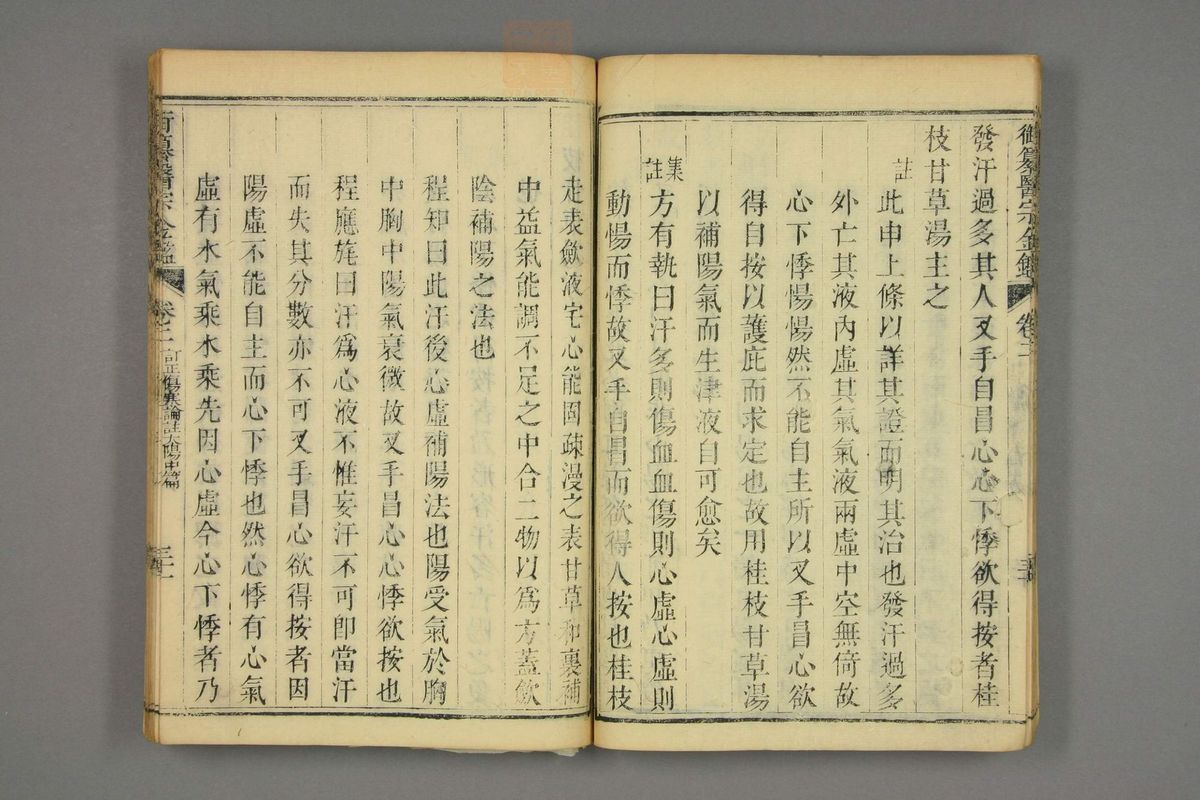 御纂醫宗金鑑 卷二
發汗過多其人叉手自冒心心下悸欲得按者桂
枝甘草湯主之
註此申上條以詳其證而明其治也發汗過多
外亡其液內虛其氣氣液兩虛中空無倚故
心下悸惕惕然不能自主所以叉手冒心欲
得自按以護庇而求定也故用桂枝甘草湯
以補陽氣而生津液自可愈矣
集註方有執曰汗多則傷血血傷則心虛心虛則
動惕而悸故叉手自冒而欲得人按也桂枝
走表歛液宅心能固疎漫之表甘草和裏補
中益氣能調不足之中合二物以爲方蓋歛
陰補陽之法也
程知曰此汗後心虛補陽法也陽受氣於胸
中胸中陽氣衰微故叉手冒心心悸欲按也
程應旄曰汗爲心液不惟妄汗不可卽當汗
而失其分數亦不可叉手冒心欲得按者因
陽虛不能自主而心下悸也然心悸有心氣
虛有水氣乘水乘先因心虛今心下悸者乃
御纂醫宗金鑑 卷二 訂正傷寒論註太陽中篇